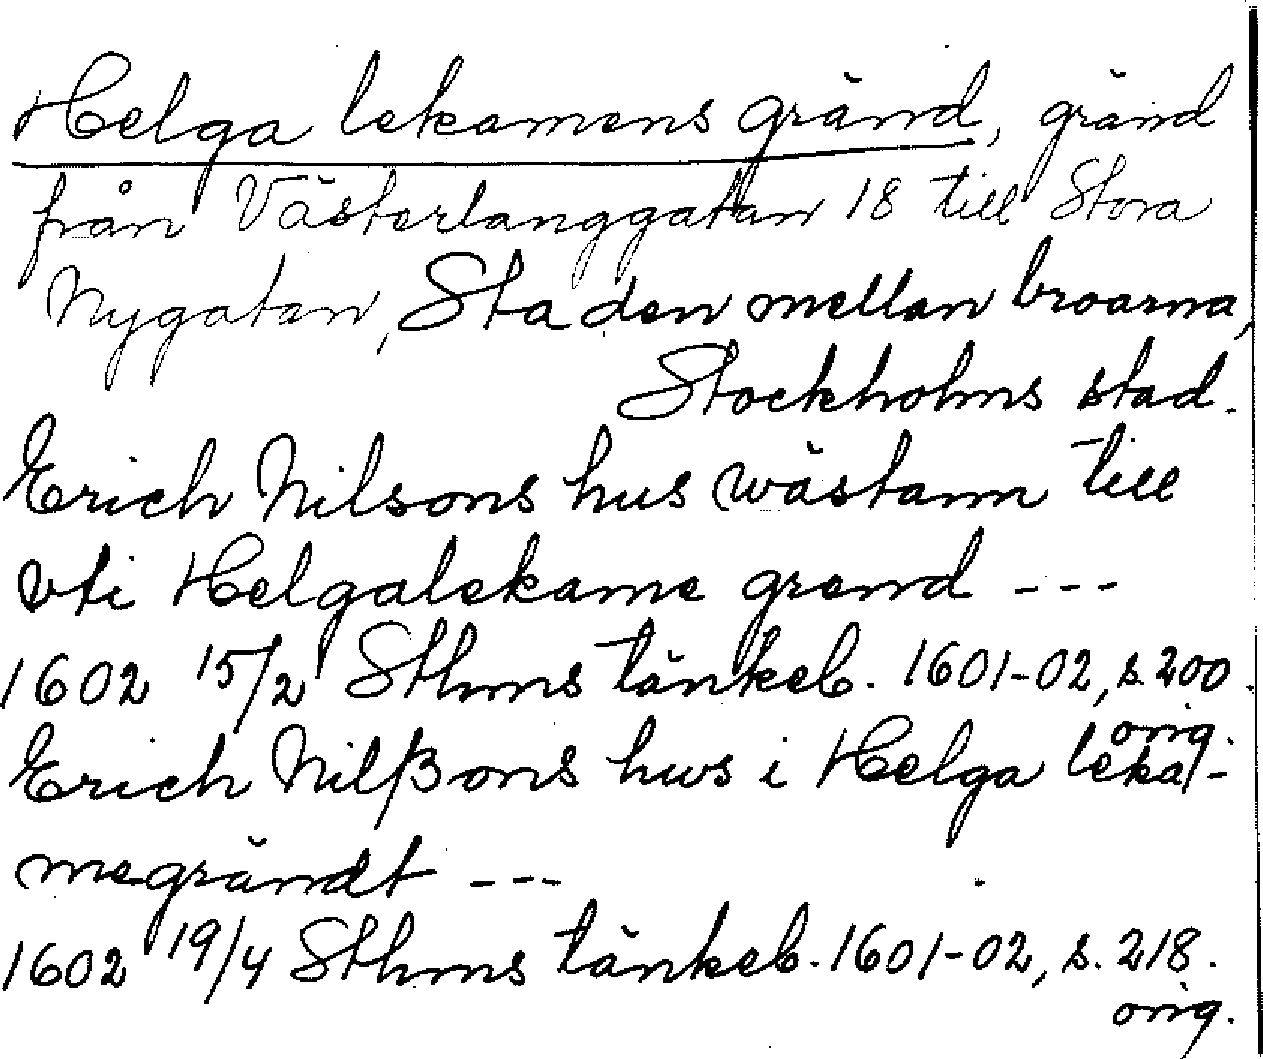 Helga lekamens gränd, gränd
från Västerlånggatan 18 till Stora
Nygatan, Staden mellan broarna,
Stockholms stad.
Erich Nilsons hus wästann till
vti Helgalekame grend ---
1602 15/2 Sthms tänkeb. 1601-02, s. 200.
orig.
Erich Nilßons hus i Helga leka-
megrändt ---
1602 19/4 Sthms tänkeb. 1601-02, s. 218.
orig.